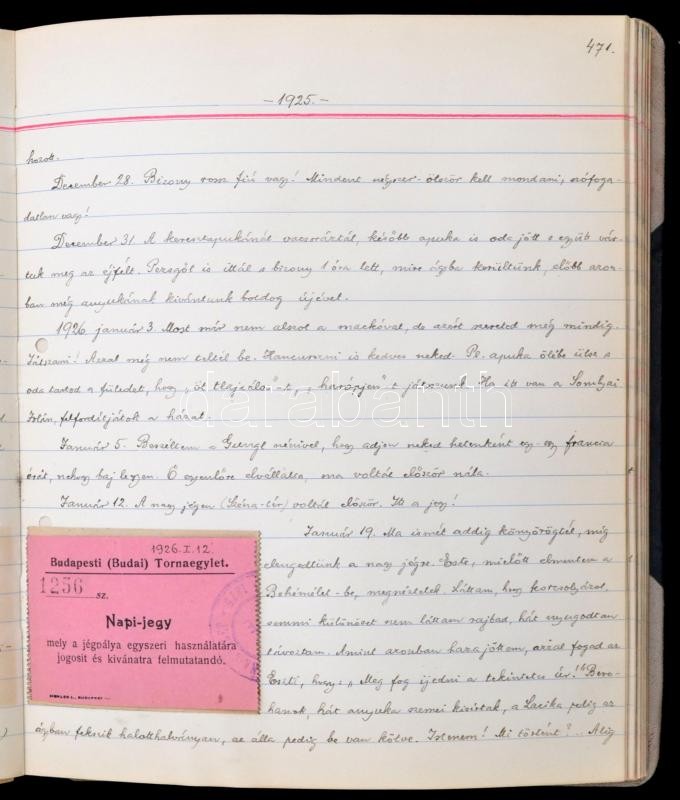 471.
- 1925. -
hozott.
December 28. Bizony rossz fiú vagy! Mindent négyszer-ötször kell mondani, szófoga-
datlan vagy!
December 31. A keresztapukánál vacsoráztál, később apuka is oda jött s együtt vár-
tuk meg az éjfélt. Pezsgőt is ittál s bizony 1 óra lett, mire ágyba kerültünk, előbb azon-
ban még anyukának kivántunk boldog újévet.
1926 január 3. Most már nem alszol a mackóval, de azért szereted még mindig.
Játszani! Azzal még nem teltél be. Hancurozni is kedves neked. Pl. apuka ölébe ülsz s
oda tartod a füledet, hogy "öt - t, " - t játszunk. Ha itt van a Somlyai
Zolán, felforditjátok a házat.
Január 5. Beszéltem a nénivel, hogy adjon neked hetenként egy-egy francia
órát, nehogy baj legyen. Ő egyenlőre elvállalta, ma voltál először nála.
Január 12. A nagy jégen (Széna-tér) voltál először. Itt a jegy!
1926. I. 12.
Budapesti (Budai) Tornaegylet.
1256 sz.
Napi-jegy
mely a jégpálya egyszeri használatára
jogosit és kivánatra felmutatandó.
Január 19. Ma ismét addig könyörögtél, míg
elengedtünk a nagy jégre. Este, mielőtt elmentem a
-be, megnéztelek. Láttam, hogy korcsolyázol,
semmi különöset nem láttam rajtad, hát nyugodtan
távoztam. Amint azonban hazajöttem, azzal fogad az
Eszti, hogy: "Meg fog ijedni a tekintetes úr!" Bero-
hanok, hát anyuka szemei kisirtak, a Lacika pedig az
ágyban fekszik halotthalványan, az álla pedig be van kötve. Istenem! Mi történt? .. Alig
darabanth